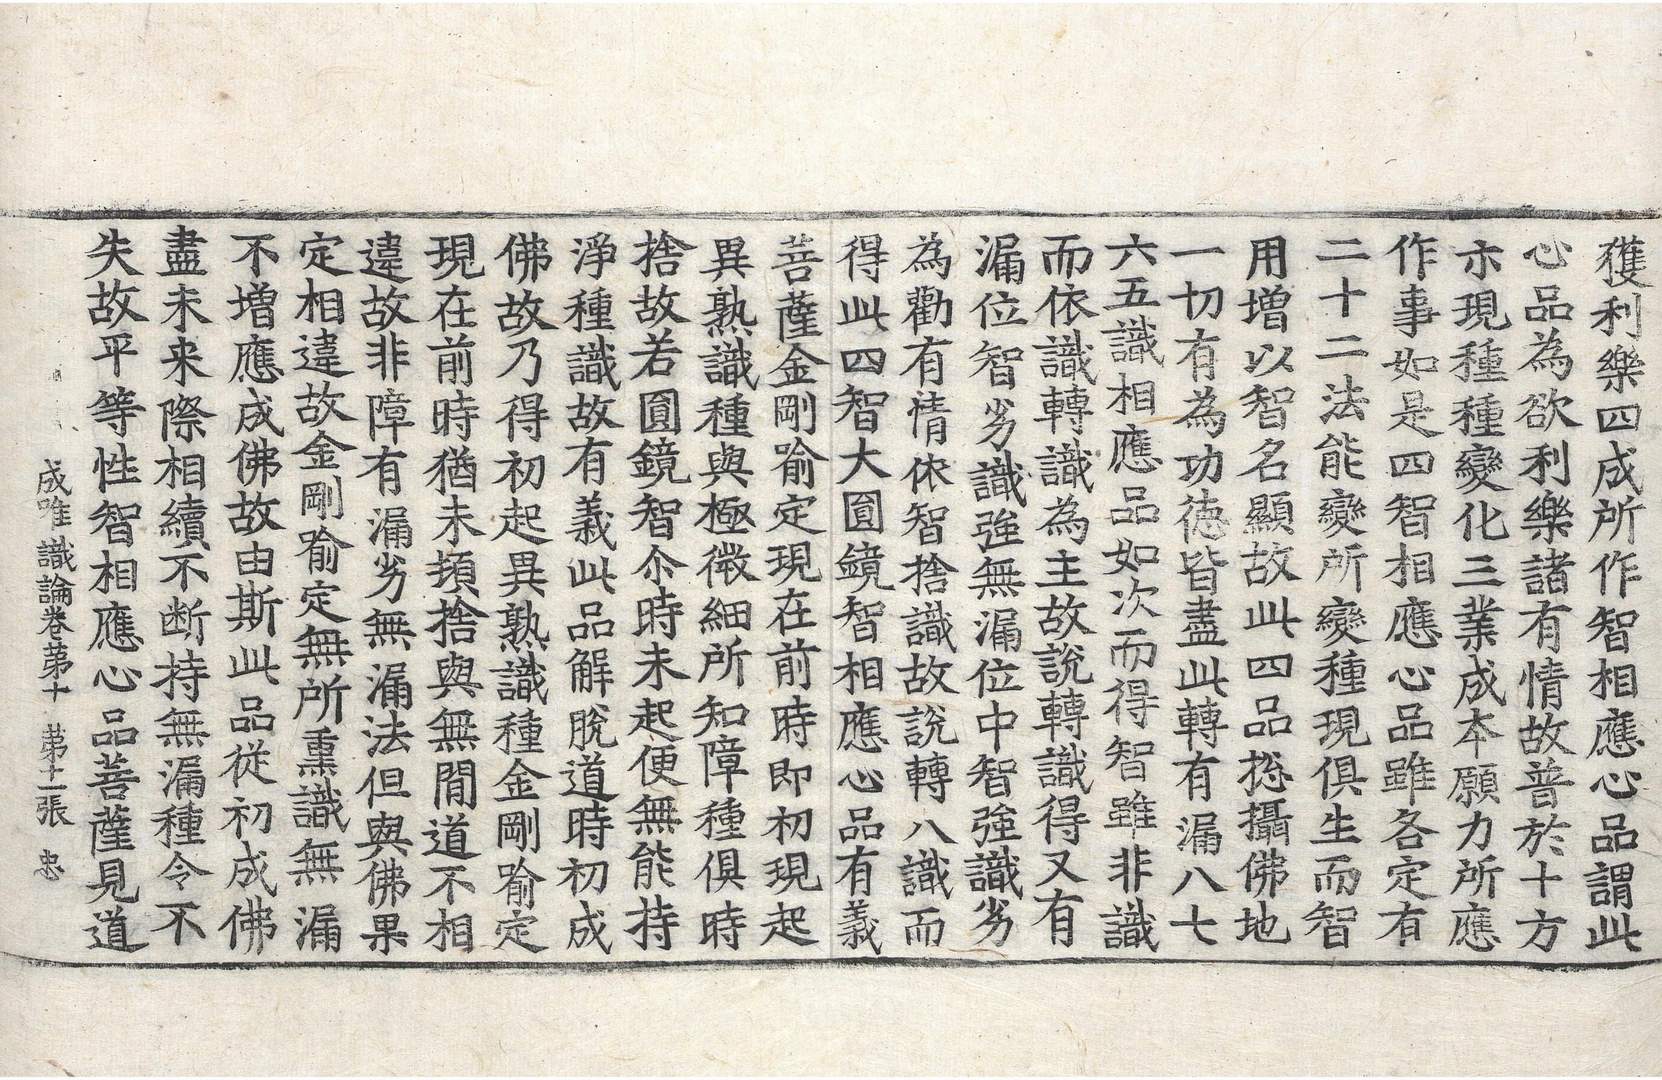 獲利樂四成所作智相應心品謂此
心品為欲利樂諸有情故普於十方
示現種種變化三業成本願力所應
作事如是四智相應心品雖各定有
二十二法能變所變種現俱生而智
用增以智名顯故此四品揔攝佛地
一切有為功徳皆盡此轉有漏八七
六五識相應品如次而得智雖非識
而依識轉識為主故說轉識得又有
漏位智劣識強無漏位中智強識劣
為勸有情依智捨識故說轉八識而
得此四智大圎鏡智相應心品有義
菩薩金剛喻定現在前時即初現起
異熟識種與極微細所知障種俱時
捨故若圎鏡智尒時未起便無能持
淨種識故有義此品解脫道時初成
佛故乃得初起異熟識種金剛喻定
現在前時猶未頓捨與無閒道不相
違故非障有漏劣無漏法但與佛果
定相違故金剛喻定無所熏識無漏
不增應成佛故由斯此品從初成佛
盡未来際相續不断持無漏種令不
失故平等性智相應心品菩薩見道
成唯識論卷苐十 苐十二張 忠